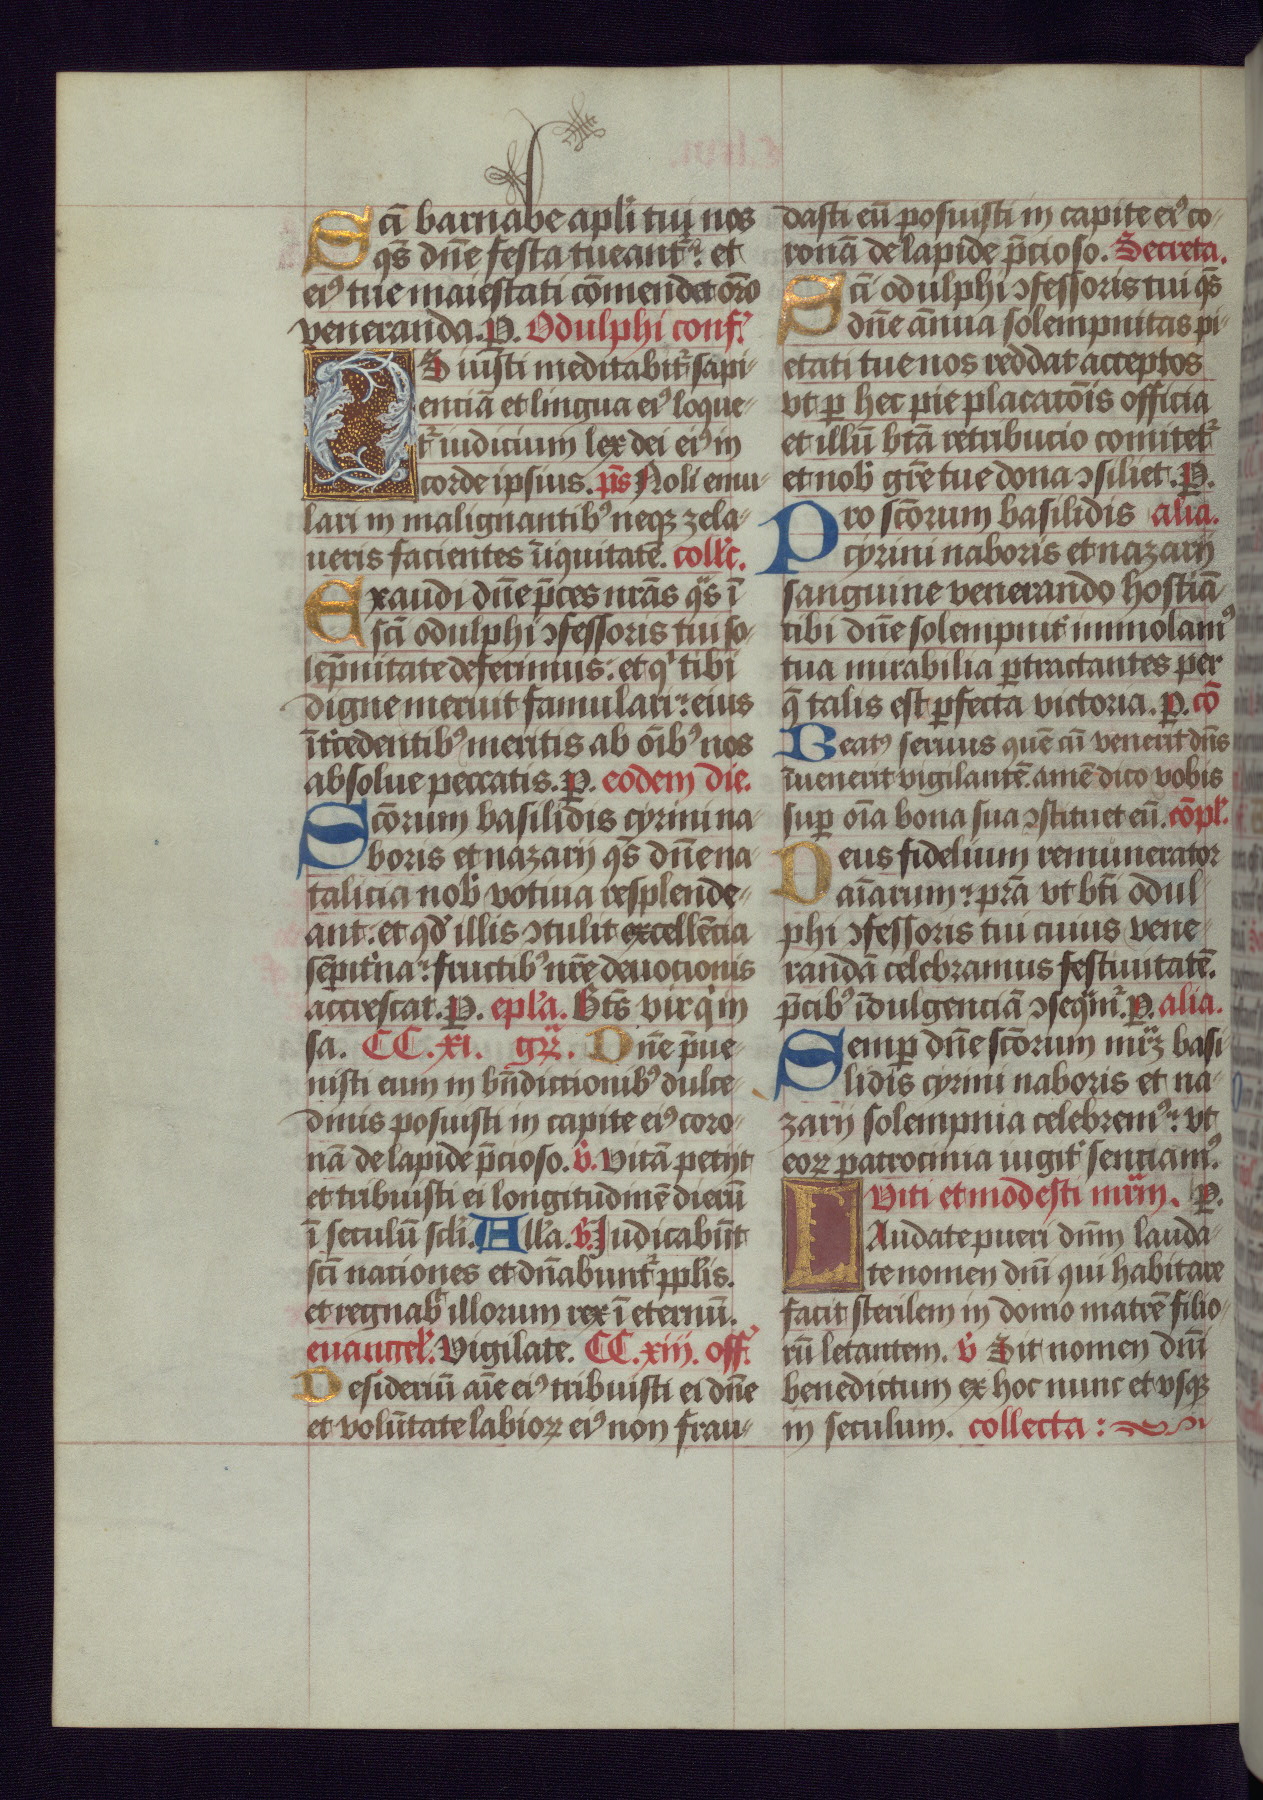 Scī barnabe apl̄i tuī nos
qs̄ dn̄e festa tueantr̄: et
eiꝰ tue maiestati cōmendet or̄o
veneranda. P. Odulphi conf.
OS iusti meditabitr̄ sapi-
enciā et lingua eiꝰ loque-
tr̄ iudicium lex dei eiꝰ in
corde ipsius. ps̄ Noli emu-
lari in malignantibꝰ neqꝫ zela-
ueris facientes īiquitatē. coll'c.
Exaudi dn̄e p̄ces nrās qs̄ ī
scī odulphi ꝯfessoris tui so-
lēpnitate deferimus: et qͥ tibi
digne meruit famulari: eius
īt'cedentibꝰ meritis ab oīb'ꝰ nos
absolue peccatis. P. eodem die.
Sc̄orum basilidis cyrini na-
boris et nazarij qs̄ dn̄e na-
talicia nob' votiua resplende-
ant. et qd' illis ꝯtulit excellēcia
sēpit'na: fructibꝰ nr̄e deuocionis
accrescat. P. epl'a. Bt̄s vir qͥ in
sa. CC.xi. gr̄. Dn̄e p̄ue-
nisti eum in bn̄dictionibꝰ dulce-
dinis posuisti in capite eiꝰ coro-
nā de lapide p̄cioso. v̄. Vitā petijt
et tribuisti ei longitudinē dierū
ī seculū scl'i. All'a. v̄. Iudicabūt
scī nationes et dn̄abuntr̄ ppl̄is.
et regnab' illorum rex ī eternū.
euāngel'. Vigilate. CC.xiii. off.
Desideriū aīe eiꝰ tribuisti ei dn̄e
et volūtate labioꝝ eiꝰ non frau-
dasti eū posuisti in capite eiꝰ co-
ronā de lapide p̄cioso. Secreta.
Scī odulphi ꝯfessoris tui qs̄
dn̄e ānua solempnitas pi-
etati tue nos reddat acceptos
vt ꝑ hec pie placacōis officia
et illū btā retribucio comitetr̄
et nob' gr̄e tue dona ꝯsiliet. P.
Pro sc̄orum basilidis alia.
cyrini naboris et nazarij
sanguine venerando hostiā
tibi dn̄e solempnit' immolamꝰ
tua mirabilia ꝑtractantes per
q̄ talis est ꝑfecta victoria. P. cō
Beatꝰ seruus quē cū venerit dn̄s
īuenerit vigilantē. amē dico vobis
suꝑ oīa bona sua ꝯstituet eū. cōpl'.
Deus fidelium remunerator
aīarum: prā vt bt̄i odul-
phi ꝯfessoris tui cuius vene-
randā celebramus festiuitatē.
p̄cibꝰ īdulgenciā ꝯseqͣm̄r. P. alia.
Semꝑ dn̄e sc̄orum mr̄ꝝ basi-
lidis cyrini naboris et na-
zarii solempnia celebremꝰ: vt
eoꝝ patrocinia iugit' senciamꝰ.
Viti et modesti mr̄m. P.
LAudate pueri dn̄m lauda-
te nomen dn̄i qui habitare
facit sterilem in domo matrē filio-
rū letantem. v̄ Sit nomen dn̄i
benedictum ex hoc nunc et vsqꝫ
in seculum. collecta: